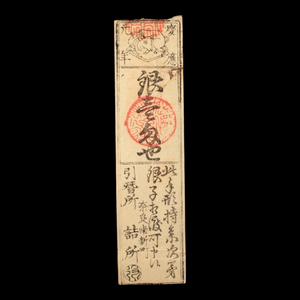 慶應
元年
銀壹匁也
此手形持参次第
銀子相渡可申候
引替所 詰所